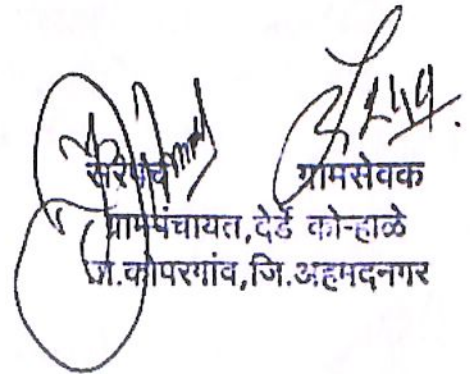 सरपंच ग्रामसेवक
ग्रामपंचायत,देर्डे को-हाळे
ता.कोपरगांव,जि.अहमदनगर